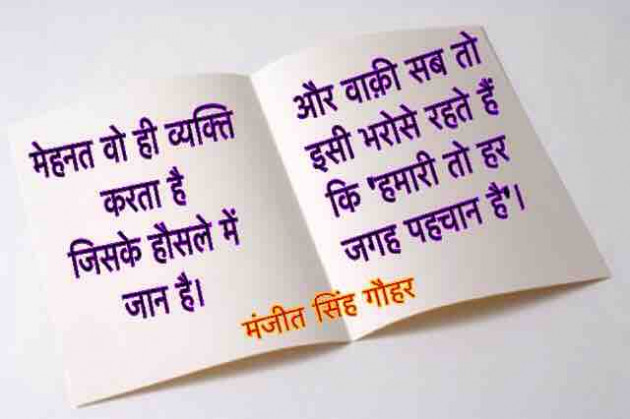 मेहनत वो ही व्यक्ति
करता है
जिसके हौसले में
जान है।
और वाक़ी सब तो
इसी भरोसे रहते हैं
कि 'हमारी तो हर
जगह पहचान है'।
मंजीत सिंह गौहर